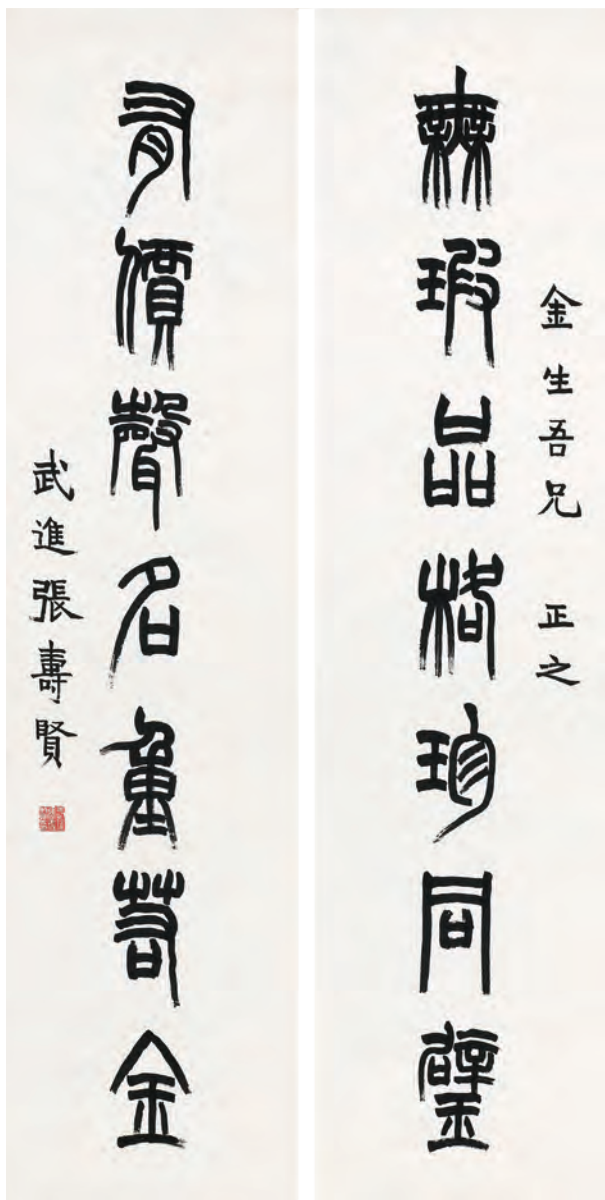 金生吾兄 正之
無瑕品格珍同璧
有價聲名重若金
武進張壽賢